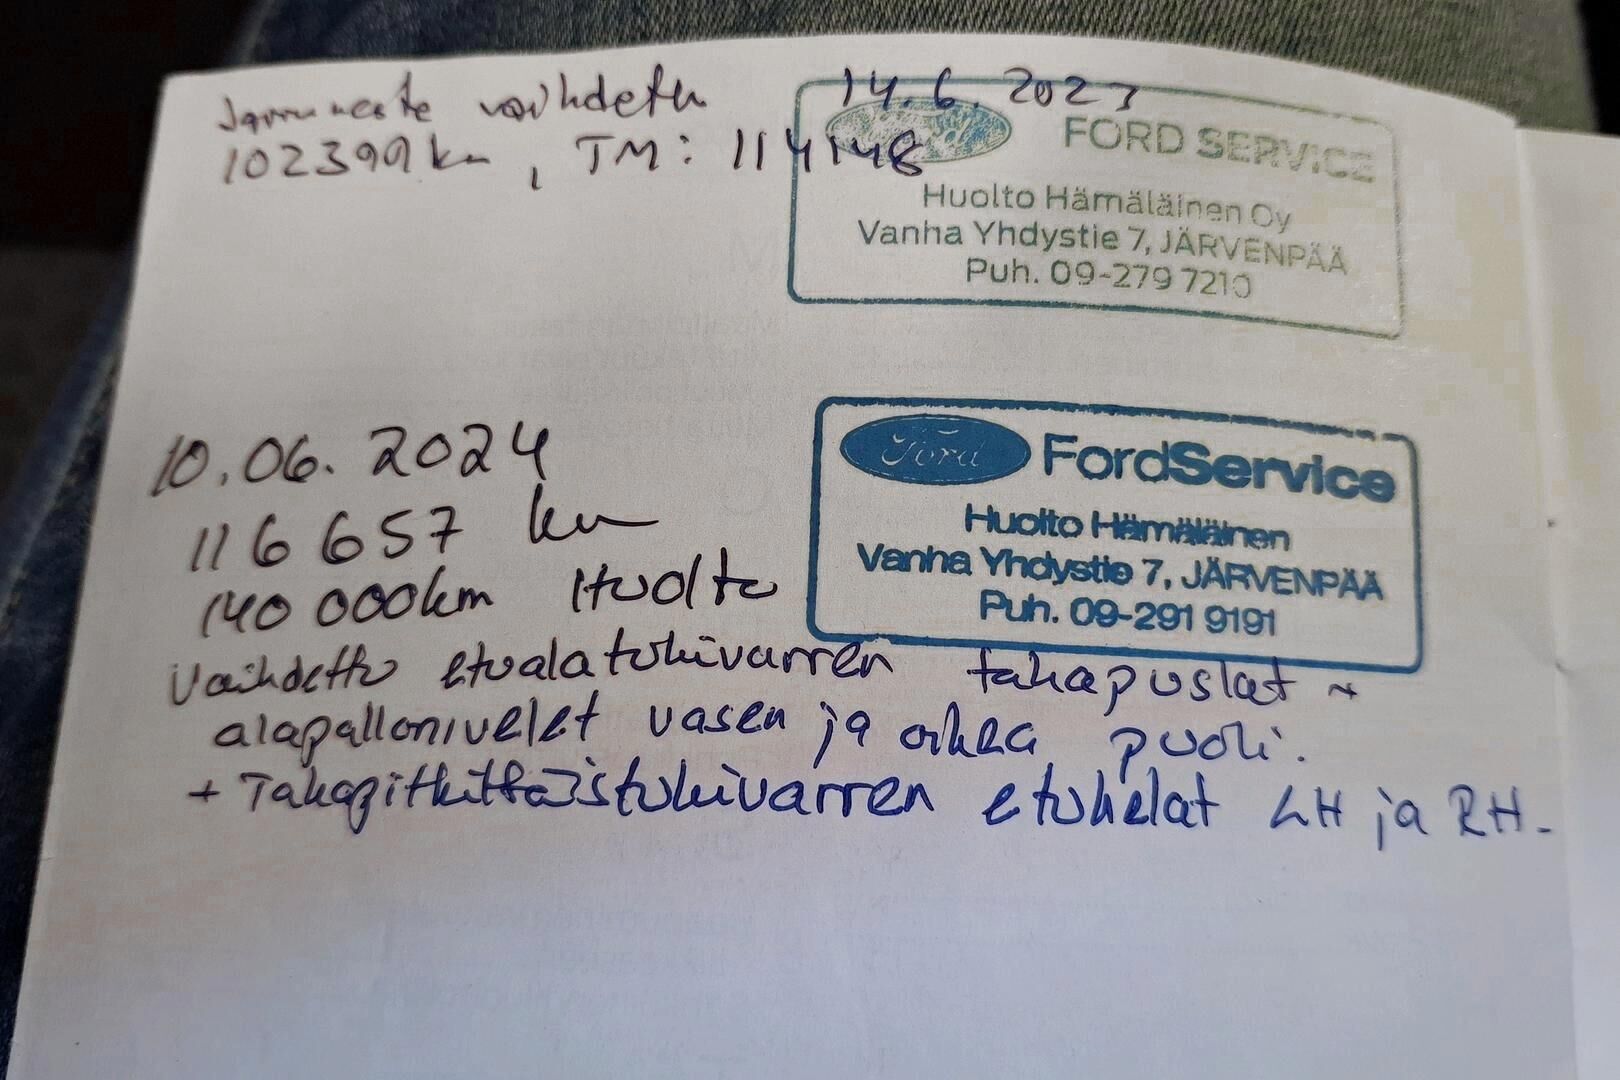 Jarruneste vaihdettu 14.6.2023
102399 km, TM: 114148
FORD SERVICE
Huolto Hämäläinen Oy
Vanha Yhdystie 7, JÄRVENPÄÄ
Puh. 09-279 7210
10.06.2024
116 657 km
140 000km Huolto
Ford FordService
Huolto Hämäläinen
Vanha Yhdystie 7, JÄRVENPÄÄ
Puh. 09-291 9191
Vaihdettu etualatukivarren takapuslat
alapallonivelet vasen ja oikea puoli.
+ Takapitkittäistukivarren etuhelat LH ja RH.